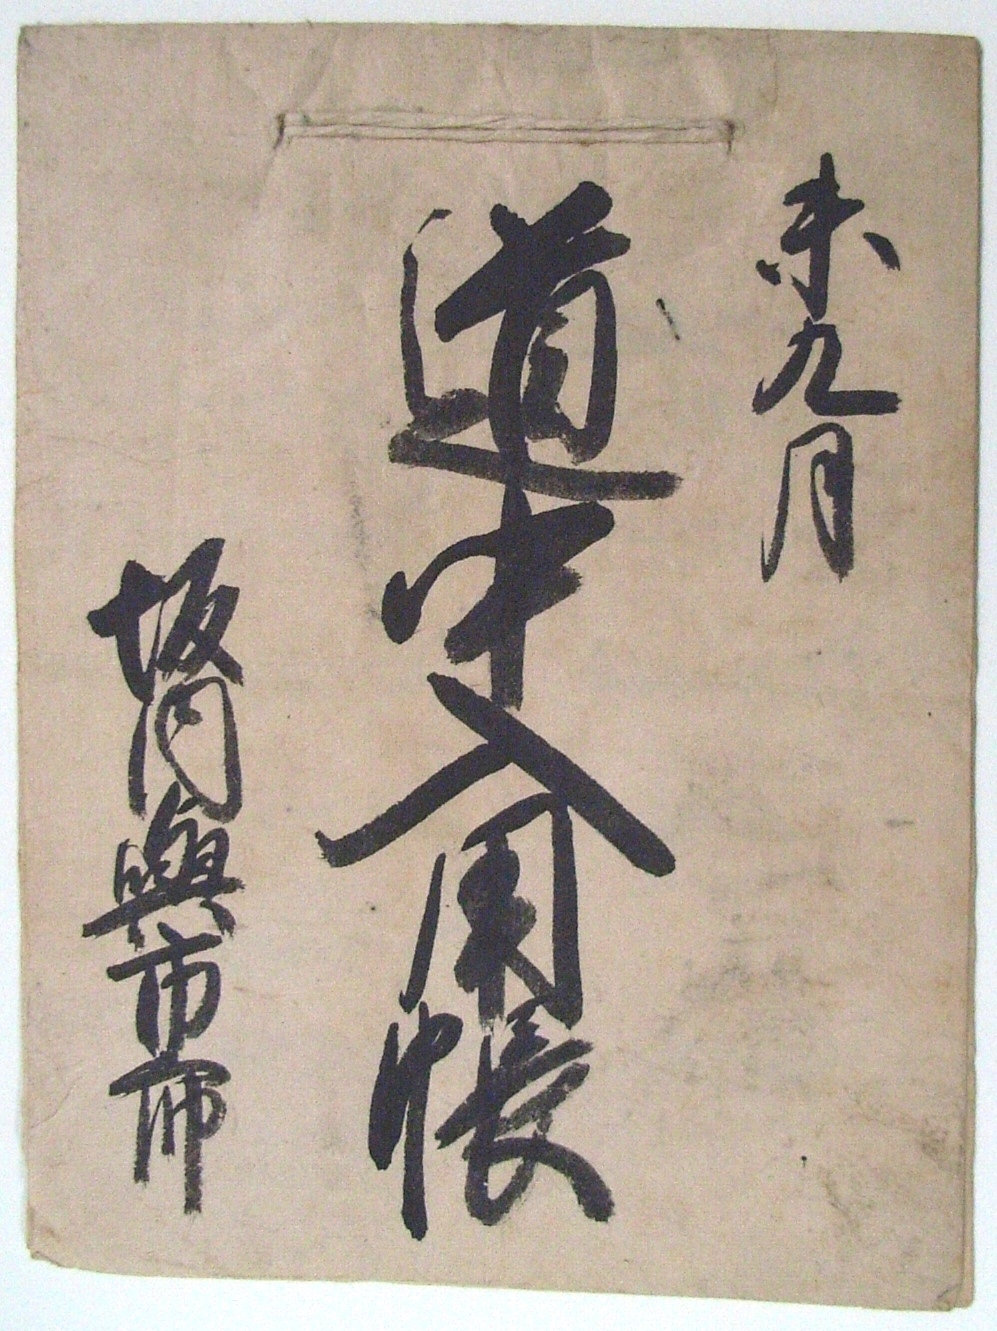 未九月
道中入用帳
坂與市